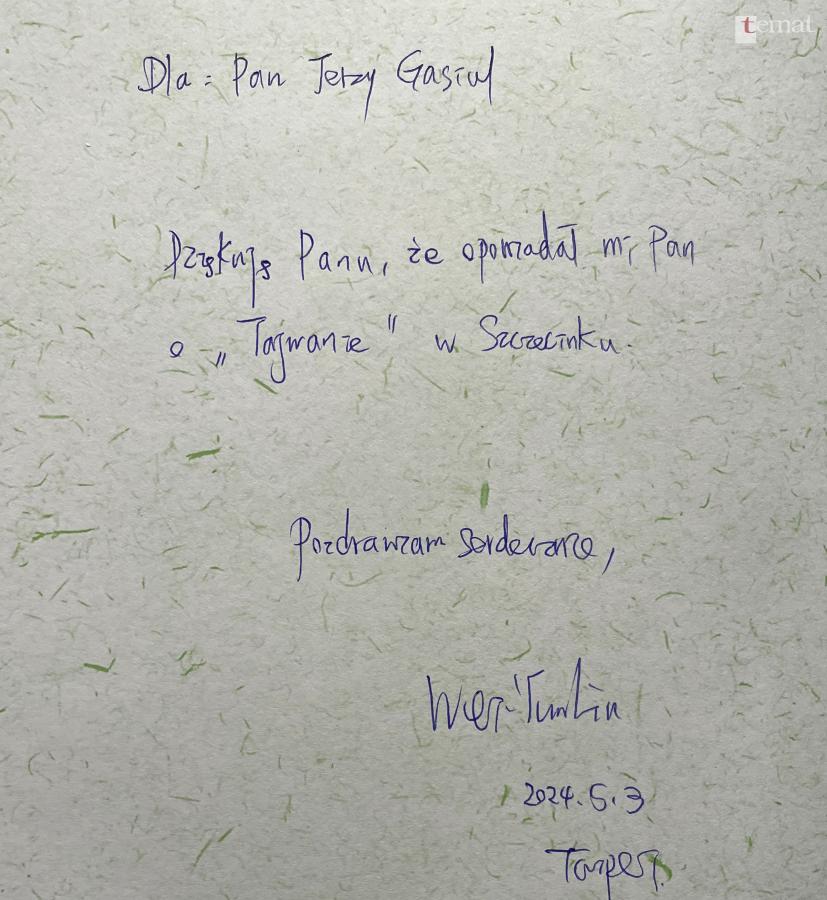 temat
Dla : Pan Jerzy Gasiul
Dziękuję Panu, że opowiadał mi Pan
o „Tajwanie” w Szczecinku.
Pozdrawiam serdecznie,
Wei-Yun Lin
2024.5.3
Taipei.